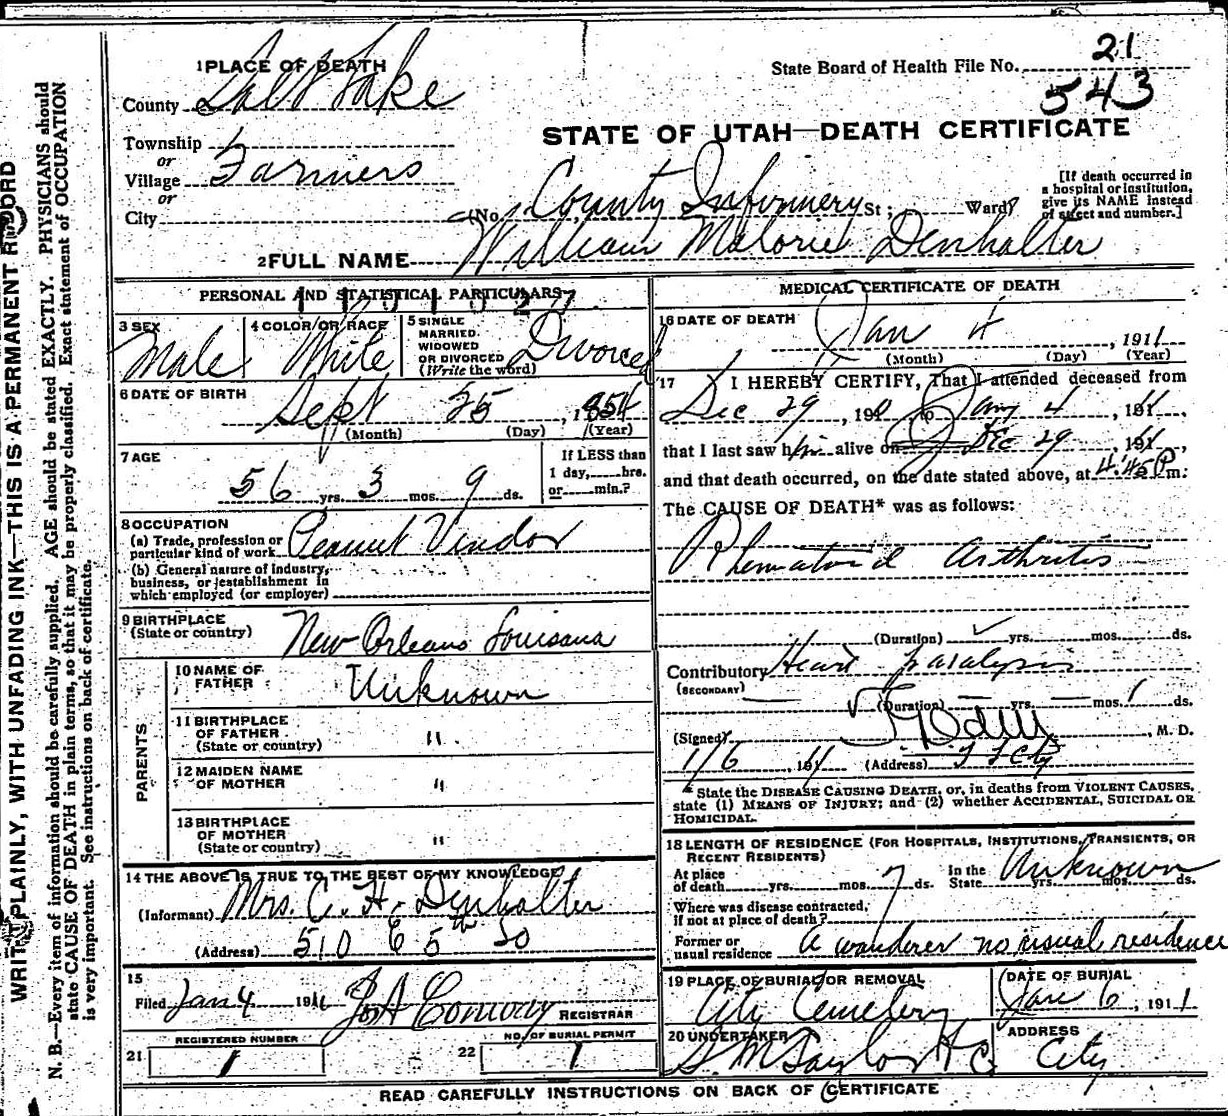 1 PLACE OF DEATH
County Salt Lake
Township
or
Village Farmers
or
City
State Board of Health File No. 21
543
STATE OF UTAH—DEATH CERTIFICATE
(No. County Infirmery St; Ward)
[If death occurred in
a hospital or institution,
give its NAME instead
of street and number.]
2 FULL NAME William Malorie Denhalter
PERSONAL AND STATISTICAL PARTICULARS
3 SEX
Male
4 COLOR OR RACE
White
5 SINGLE
MARRIED
WIDOWED
OR DIVORCED
(Write the word)
Divorced
6 DATE OF BIRTH
Sept 25, 1854
(Month) (Day) (Year)
7 AGE
56 yrs. 3 mos. 9 ds.
If LESS than
1 day, hrs.
or min.?
8 OCCUPATION
(a) Trade, profession or
particular kind of work Peanut Vindor
(b) General nature of industry,
business, or establishment in
which employed (or employer)
9 BIRTHPLACE
(State or country)
New Orleans Louisana
PARENTS
10 NAME OF
FATHER
Unknown
11 BIRTHPLACE
OF FATHER
(State or country)
"
12 MAIDEN NAME
OF MOTHER
"
13 BIRTHPLACE
OF MOTHER
(State or country)
"
14 THE ABOVE IS TRUE TO THE BEST OF MY KNOWLEDGE
(Informant) Mrs. C. H. Denhalter
(Address) 510 E 5th So
15
Filed Jan 4 191 Conway REGISTRAR
REGISTERED NUMBER
21 1
NO. OF BURIAL PERMIT
22 1
MEDICAL CERTIFICATE OF DEATH
16 DATE OF DEATH
Jan 4, 1911
(Month) (Day) (Year)
17 I HEREBY CERTIFY, That I attended deceased from
Dec 29, 191 to Jany 4, 1911,
that I last saw him alive on Dec 29, 191,
and that death occurred, on the date stated above, at 4:45 P m.
The CAUSE OF DEATH* was as follows:
Rhematoid Arthritis
(Duration) yrs. mos. ds.
Contributory Heart Paralysis
(SECONDARY)
(Duration) — yrs. — mos. 1 ds.
(Signed) M. D.
1/6, 1911 (Address)
* State the DISEASE CAUSING DEATH, or, in deaths from VIOLENT CAUSES,
state (1) MEANS OF INJURY; and (2) whether ACCIDENTAL, SUICIDAL OR
HOMICIDAL.
18 LENGTH OF RESIDENCE (FOR HOSPITALS, INSTITUTIONS, TRANSIENTS, OR
RECENT RESIDENTS)
At place
of death yrs. mos. 7 ds.
In the
State Unknown yrs. mos. ds.
Where was disease contracted,
if not at place of death?
Former or
usual residence a wanderer no usual residence
19 PLACE OF BURIAL OR REMOVAL
City Cemetery
DATE OF BURIAL
Jan 6, 1911
20 UNDERTAKER
S. M. Taylor
ADDRESS
City
READ CAREFULLY INSTRUCTIONS ON BACK OF CERTIFICATE
WRITE PLAINLY, WITH UNFADING INK—THIS IS A PERMANENT RECORD
N. B.—Every item of information should be carefully supplied. AGE should be stated EXACTLY. PHYSICIANS should
state CAUSE OF DEATH in plain terms, so that it may be properly classified. Exact statement of OCCUPATION
is very important. See instructions on back of certificate.